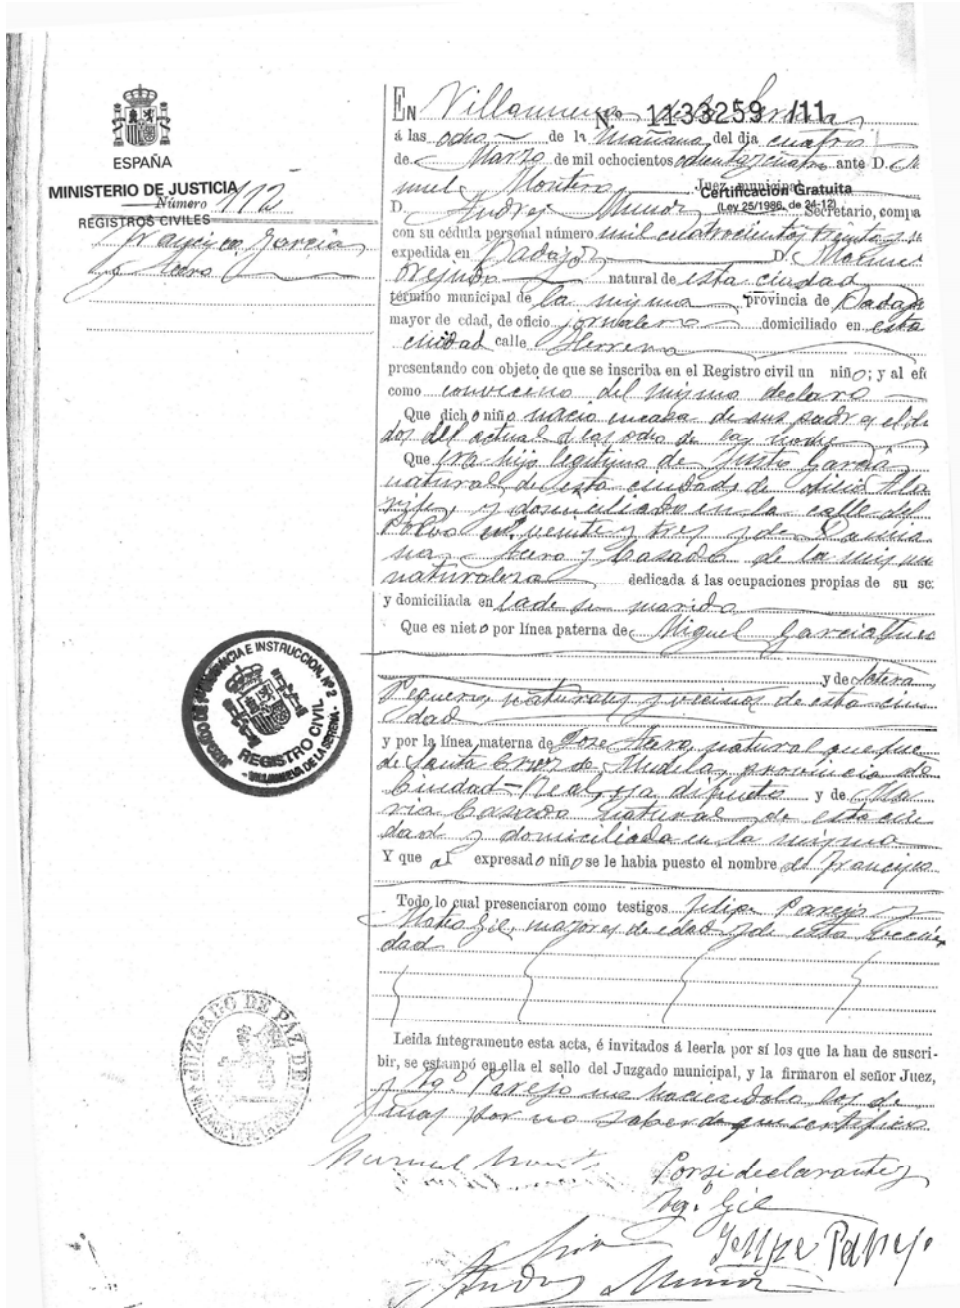 ESPAÑA
MINISTERIO DE JUSTICIA
Número 112
REGISTROS CIVILES
Francisco García
y Acero
EN Villanueva de la Serena
Nº 1133259 /11
á las ocho de la mañana del dia cuatro
de Marzo de mil ochocientos ochenta y cuatro ante D. Ma
nuel Montero Juez municipal
Certificación Gratuita
(Ley 25/1986, de 24-12)
D. Andres Munoz Secretario, compa
con su cédula personal número mil cuatrocientos treinta y
expedida en Badajoz D.
natural de esta ciudad
término municipal de la misma provincia de Badajo
mayor de edad, de oficio jornalero domiciliado en esta
ciudad calle Herrera
presentando con objeto de que se inscriba en el Registro civil un niño; y al efe
como convecino del mismo declaro
Que dicho niño nacio en casa de sus padres el dia
dos del actual á las ocho de la noche
Que era hijo legitimo de Justo García
natural de esta ciudad de oficio
y domiciliado en la calle del
Polvo nº veinte y tres y de
Acero y Casado de la misma
naturaleza dedicada á las ocupaciones propias de su se
y domiciliada en la de su marido
Que es nieto por línea paterna de Miguel Garcia
y de
naturales y vecinos de esta ciu
dad
y por la línea materna de Jose Acero, natural que fue
de Santa Cruz de Mudela, provincia de
Ciudad-Real, ya difunto y de Ma
ria Casado natural de esta ciu
dad y domiciliada en la misma
Y que al expresado niño se le habia puesto el nombre de Francisco
Todo lo cual presenciaron como testigos Felipe Parejo y
Gil, mayores de edad y de esta vecin
dad
Leida íntegramente esta acta, é invitados á leerla por sí los que la han de suscri-
bir, se estampó en ella el sello del Juzgado municipal, y la firmaron el señor Juez,
y tgº Parejo no haciendolo los de
mas por no saber de que certifico
JUZGADO DE 1ª INSTANCIA E INSTRUCCION, Nº 2
REGISTRO CIVIL
- VILLANUEVA DE LA SERENA -
JUZGADO DE PAZ DE
Manuel Montero
Por si declarante y
tgº Gil
Felipe Parejo
Andres Munoz